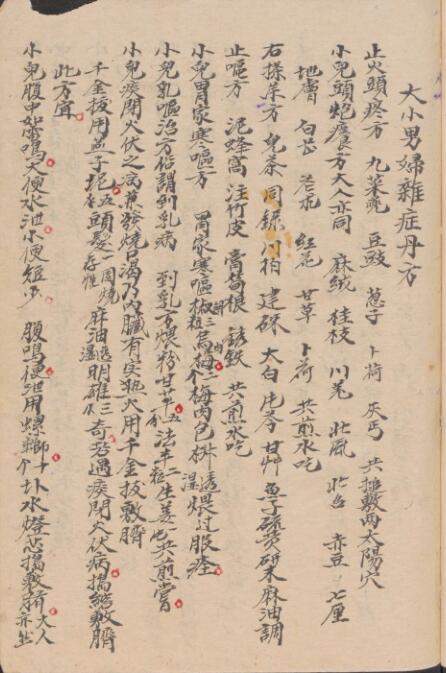 大小男婦雜症丹方
止火頭疼方 九菜兜 豆豉 葱子 卜荷 灰丐 共搥敷兩太陽穴
小兒頭炮瘡方大人亦同 麻絨 桂枝 川芎 北風 北 赤豆 七厘
地膚 白芷 紅花 甘草 卜荷 共煎水吃
右搽藥方 兒茶 同綠 川柏 建硃 大白 片苓 甘艸 魚子硫黃 研末麻油調
止嘔方 泥蜂窩 注竹皮 膏葛根 銹鉄 共煎水吃
小兒胃家寒嘔方 胃家寒嘔椒三粒烏梅二个梅內包椒透濕煨过服痊
小兒乳嘔治方俗謂到乳病 到乳方煨粉甘草五分法半二粒生姜七共煎嘗
小兒痰閉火伏之病燕發燒口渴乃內臟有实熱火用千金拔敷臍
千金拔用孟子坭五个頭髮一團燒存性麻油透濕明雄三个奇各過痰閉火伏病搗絨敷臍
此方宜
小兒腹中如雷鳴大便水泄小便短少 腹鳴便泄用螺螄十个圤水燈芯搗敷臍大人亦然